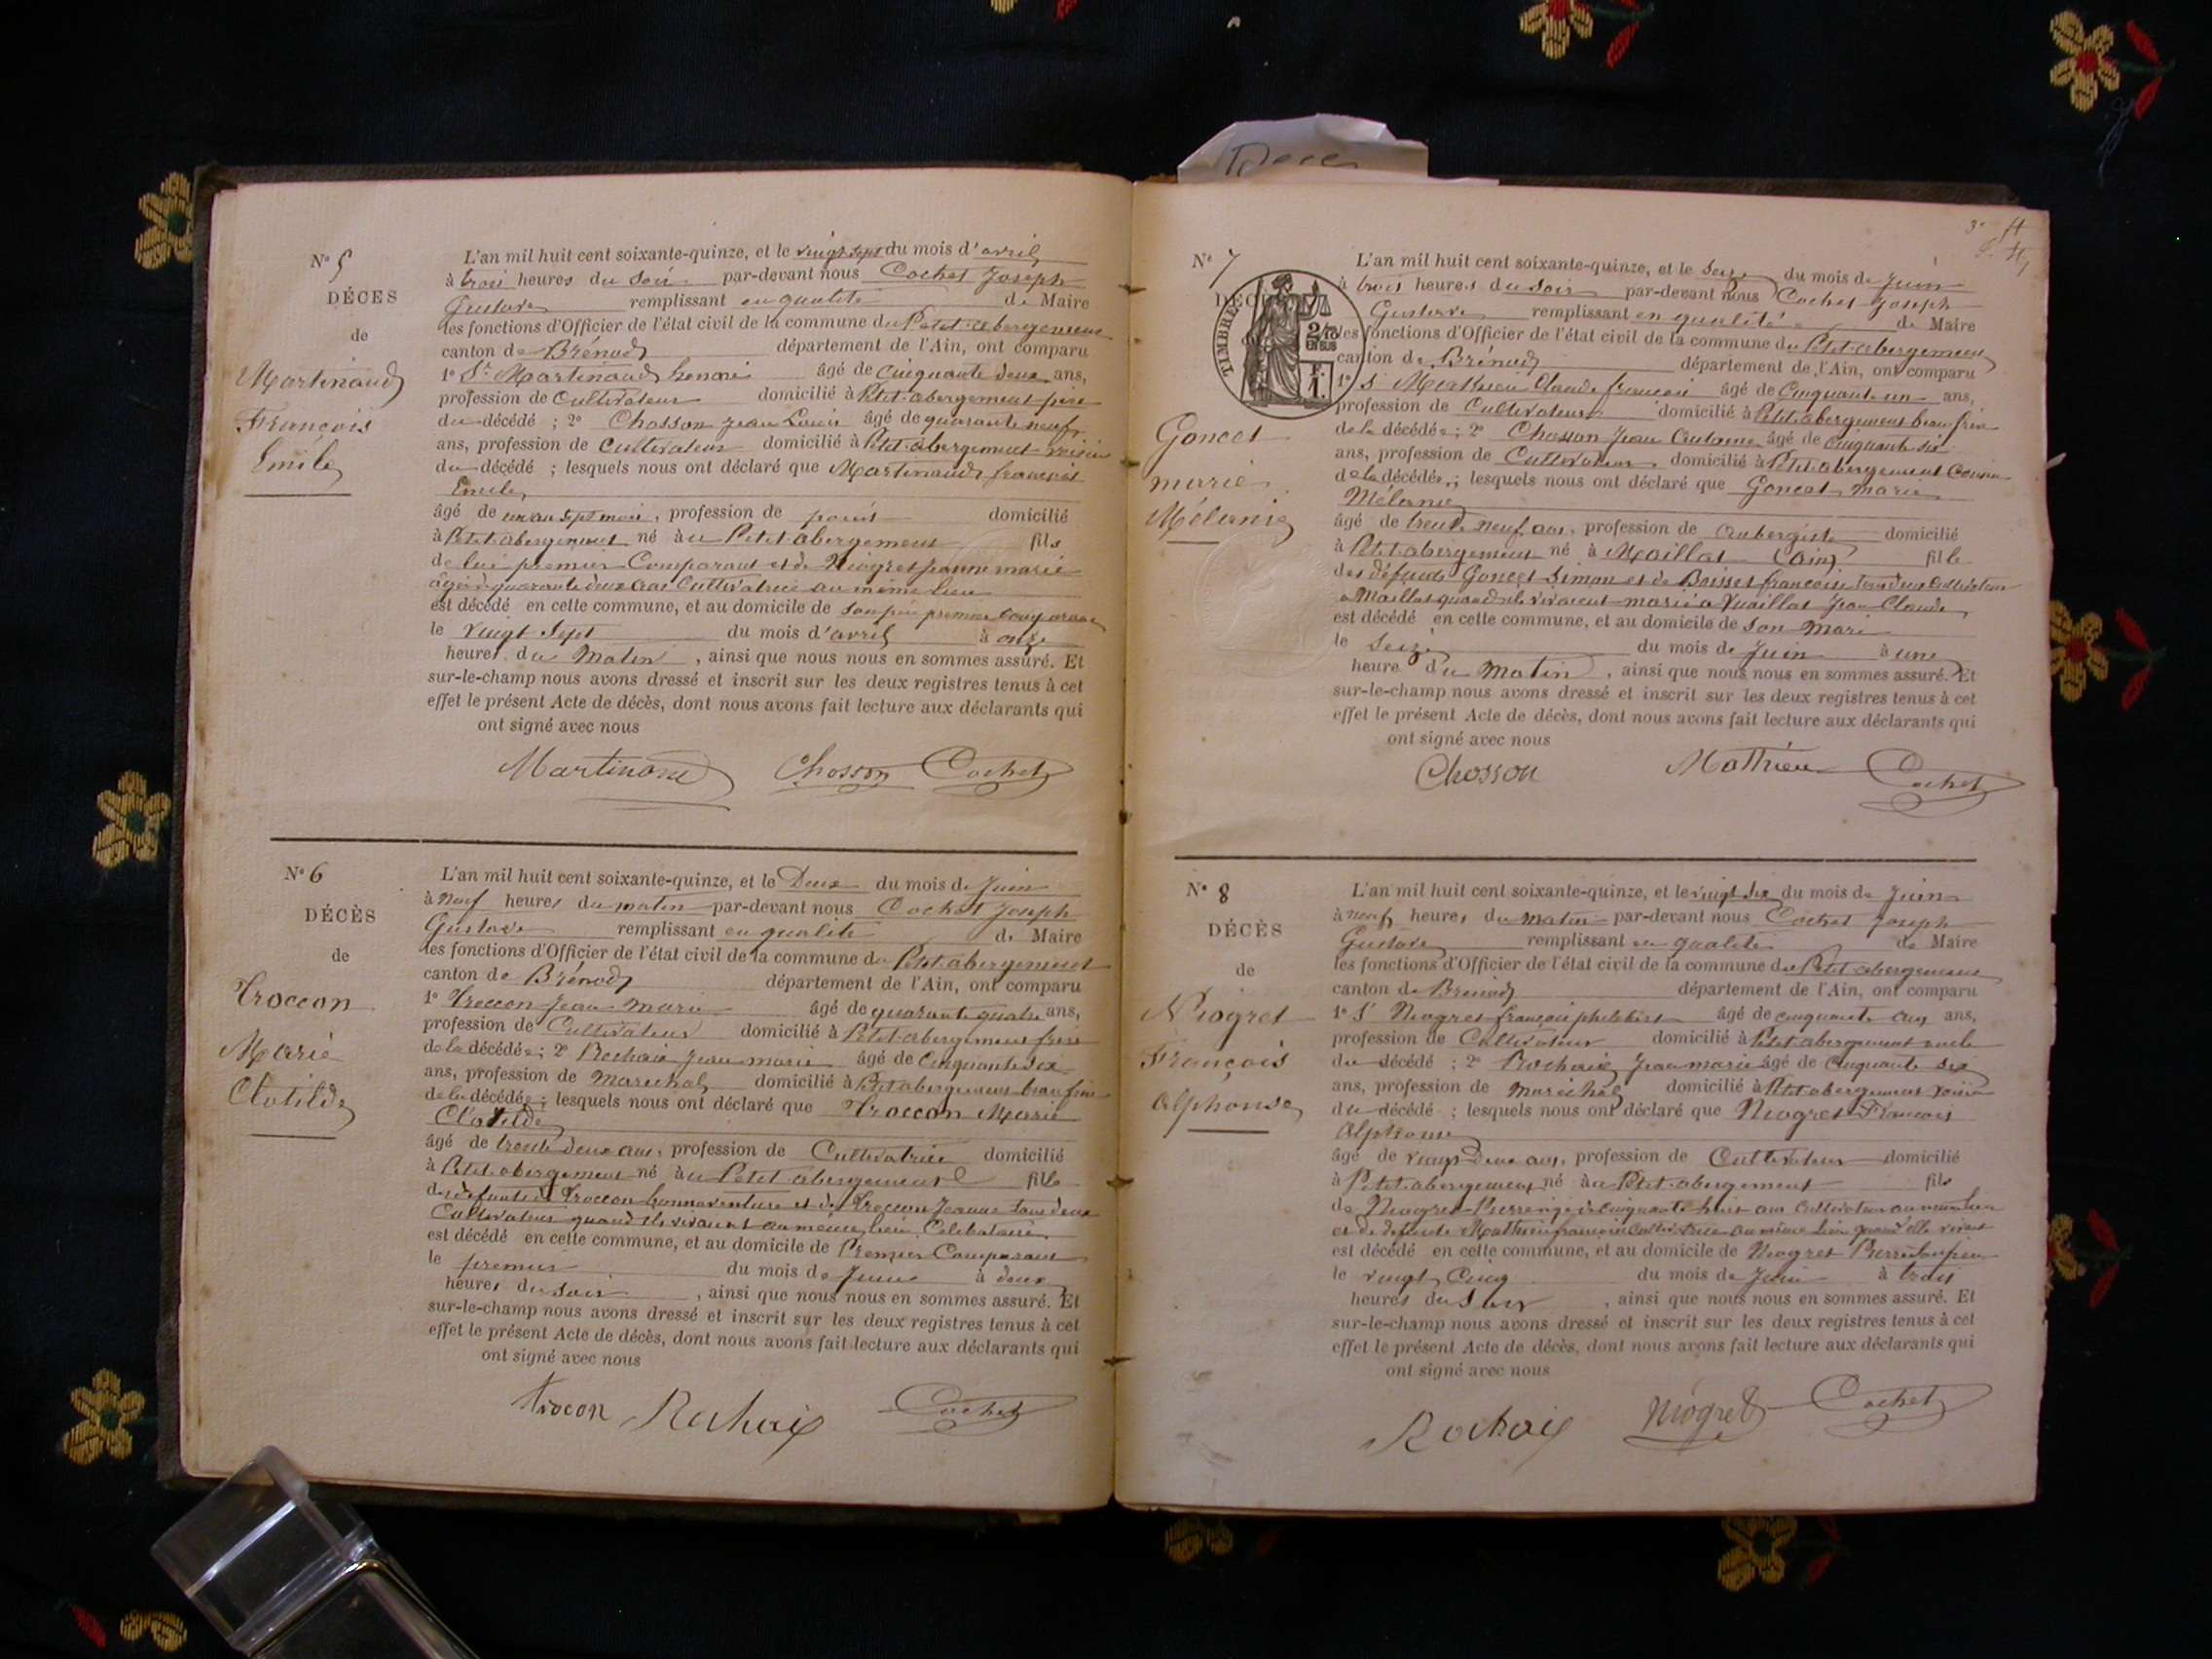 Décès
N° 5
DÉCES
de
Martinand
François
Emile
L'an mil huit cent soixante-quinze, et le vingt sept du mois d'avril
à trois heures du soir par-devant nous Cochet Joseph
Gustave remplissant en qualité de Maire
les fonctions d'Officier de l'état civil de la commune du Petit-abergement
canton de Brénod département de l'Ain, ont comparu
1° Sr Martinand âgé de cinquante deux ans,
profession de Cultivateur domicilié à Petit-abergement père
du décédé ; 2° Chosson Jean Louis âgé de quarante neuf
ans, profession de Cultivateur domicilié à Petit-abergement voisin
du décédé ; lesquels nous ont déclaré que Martinand françois
Emile
âgé de un an sept mois, profession de domicilié
à Petit abergement né à u Petit-abergement fils
de lui premier Comparant et de Niogret jeanne marie
âgée de quarante deux ans Cultivatrice au même lieu
est décédé en cette commune, et au domicile de son père premier comparant
le vingt sept du mois d'avril à onze
heures du Matin, ainsi que nous nous en sommes assuré. Et
sur-le-champ nous avons dressé et inscrit sur les deux registres tenus à cet
effet le présent Acte de décès, dont nous avons fait lecture aux déclarants qui
ont signé avec nous
Martinand Chosson Cochet
N° 6
DÉCÈS
de
Troccon
Marie
Clotilde
L'an mil huit cent soixante-quinze, et le Deux du mois de Juin
à neuf heures du matin par-devant nous Cochet Joseph
Gustave remplissant en qualité de Maire
les fonctions d'Officier de l'état civil de la commune du Petit-abergement
canton de Brénod département de l'Ain, ont comparu
1° Troccon Jean Marie âgé de quarante quatre ans,
profession de Cultivateur domicilié à Petit-abergement frère
de la décédée ; 2° Rochaix Jean marie âgé de Cinquante six
ans, profession de Maréchal domicilié à Petit abergement beau frère
de la décédée ; lesquels nous ont déclaré que Troccon Marie
Clotilde
âgé de trente deux ans, profession de Cultivatrice domicilié
à Petit-abergement né à u Petit abergement fille
de défunts Troccon bonnaventure et de Troccon Jeanne tous deux
Cultivateurs quand ils vivaient au même lieu, Célibataire.
est décédé en cette commune, et au domicile de Premier Comparant
le premier du mois de Juin à deux
heures du soir, ainsi que nous nous en sommes assuré. Et
sur-le-champ nous avons dressé et inscrit sur les deux registres tenus à cet
effet le présent Acte de décès, dont nous avons fait lecture aux déclarants qui
ont signé avec nous
Trocon Rochaix Cochet
N° 7
DÉC
TIMBRE
2/10
EN SUS
F.
1.
Goncet
marie
Mélanie
L'an mil huit cent soixante-quinze, et le Seize du mois de Juin
à trois heures du soir par-devant nous Cochet Joseph
Gustave remplissant en qualité de Maire
les fonctions d'Officier de l'état civil de la commune du Petit-abergement
canton de Brénod département de l'Ain, ont comparu
1° S Mathieu Claude françois âgé de Cinquante un ans,
profession de Cultivateur domicilié à Petit abergement beau frère
de la décédée ; 2° Chosson Jean Antoine âgé de Cinquante six
ans, profession de Cultivateur domicilié à Petit abergement Cousin
de la décédée ; lesquels nous ont déclaré que Goncet Marie
Mélanie
âgé de trente neuf ans, profession de aubergiste domicilié
à Petit abergement né à Maillat (Ain) fille
des défunts Goncet Simon et de Boisset françoise tous deux Cultivateurs
à Maillat quand ils vivaient mariée à Vuaillat Jean Claude
est décédé en cette commune, et au domicile de son Mari
le Seize du mois de Juin à une
heure du Matin, ainsi que nous nous en sommes assuré. Et
sur-le-champ nous avons dressé et inscrit sur les deux registres tenus à cet
effet le présent Acte de décès, dont nous avons fait lecture aux déclarants qui
ont signé avec nous
Chosson Mathieu Cochet
N° 8
DÉCÈS
de
Niogret
François
Alphonse
L'an mil huit cent soixante-quinze, et le vingt six du mois de Juin
à neuf heures du Matin par-devant nous Cochet Joseph
Gustave remplissant en qualité de Maire
les fonctions d'Officier de l'état civil de la commune du Petit abergement
canton de Brénod département de l'Ain, ont comparu
1° S Niogret françois philibert âgé de cinquante ans,
profession de Cultivateur domicilié à Petit abergement oncle
du décédé ; 2° Rochaix Jean marie âgé de Cinquante six
ans, profession de Maréchal domicilié à Petit abergement voisin
du décédé ; lesquels nous ont déclaré que Niogret François
Alphonse
âgé de vingt Deux ans, profession de Cultivateur domicilié
à Petit abergement né à u Petit-abergement fils
de Niogret Pierre âgé de Cinquante huit ans Cultivateur au même lieu
et de défunte Mathieu françoise Cultivatrice au même lieu quand elle vivait
est décédé en cette commune, et au domicile de Niogret Pierre son père
le vingt Cinq du mois de Juin à trois
heures du Soir, ainsi que nous nous en sommes assuré. Et
sur-le-champ nous avons dressé et inscrit sur les deux registres tenus à cet
effet le présent Acte de décès, dont nous avons fait lecture aux déclarants qui
ont signé avec nous
Rochaix Niogret Cochet